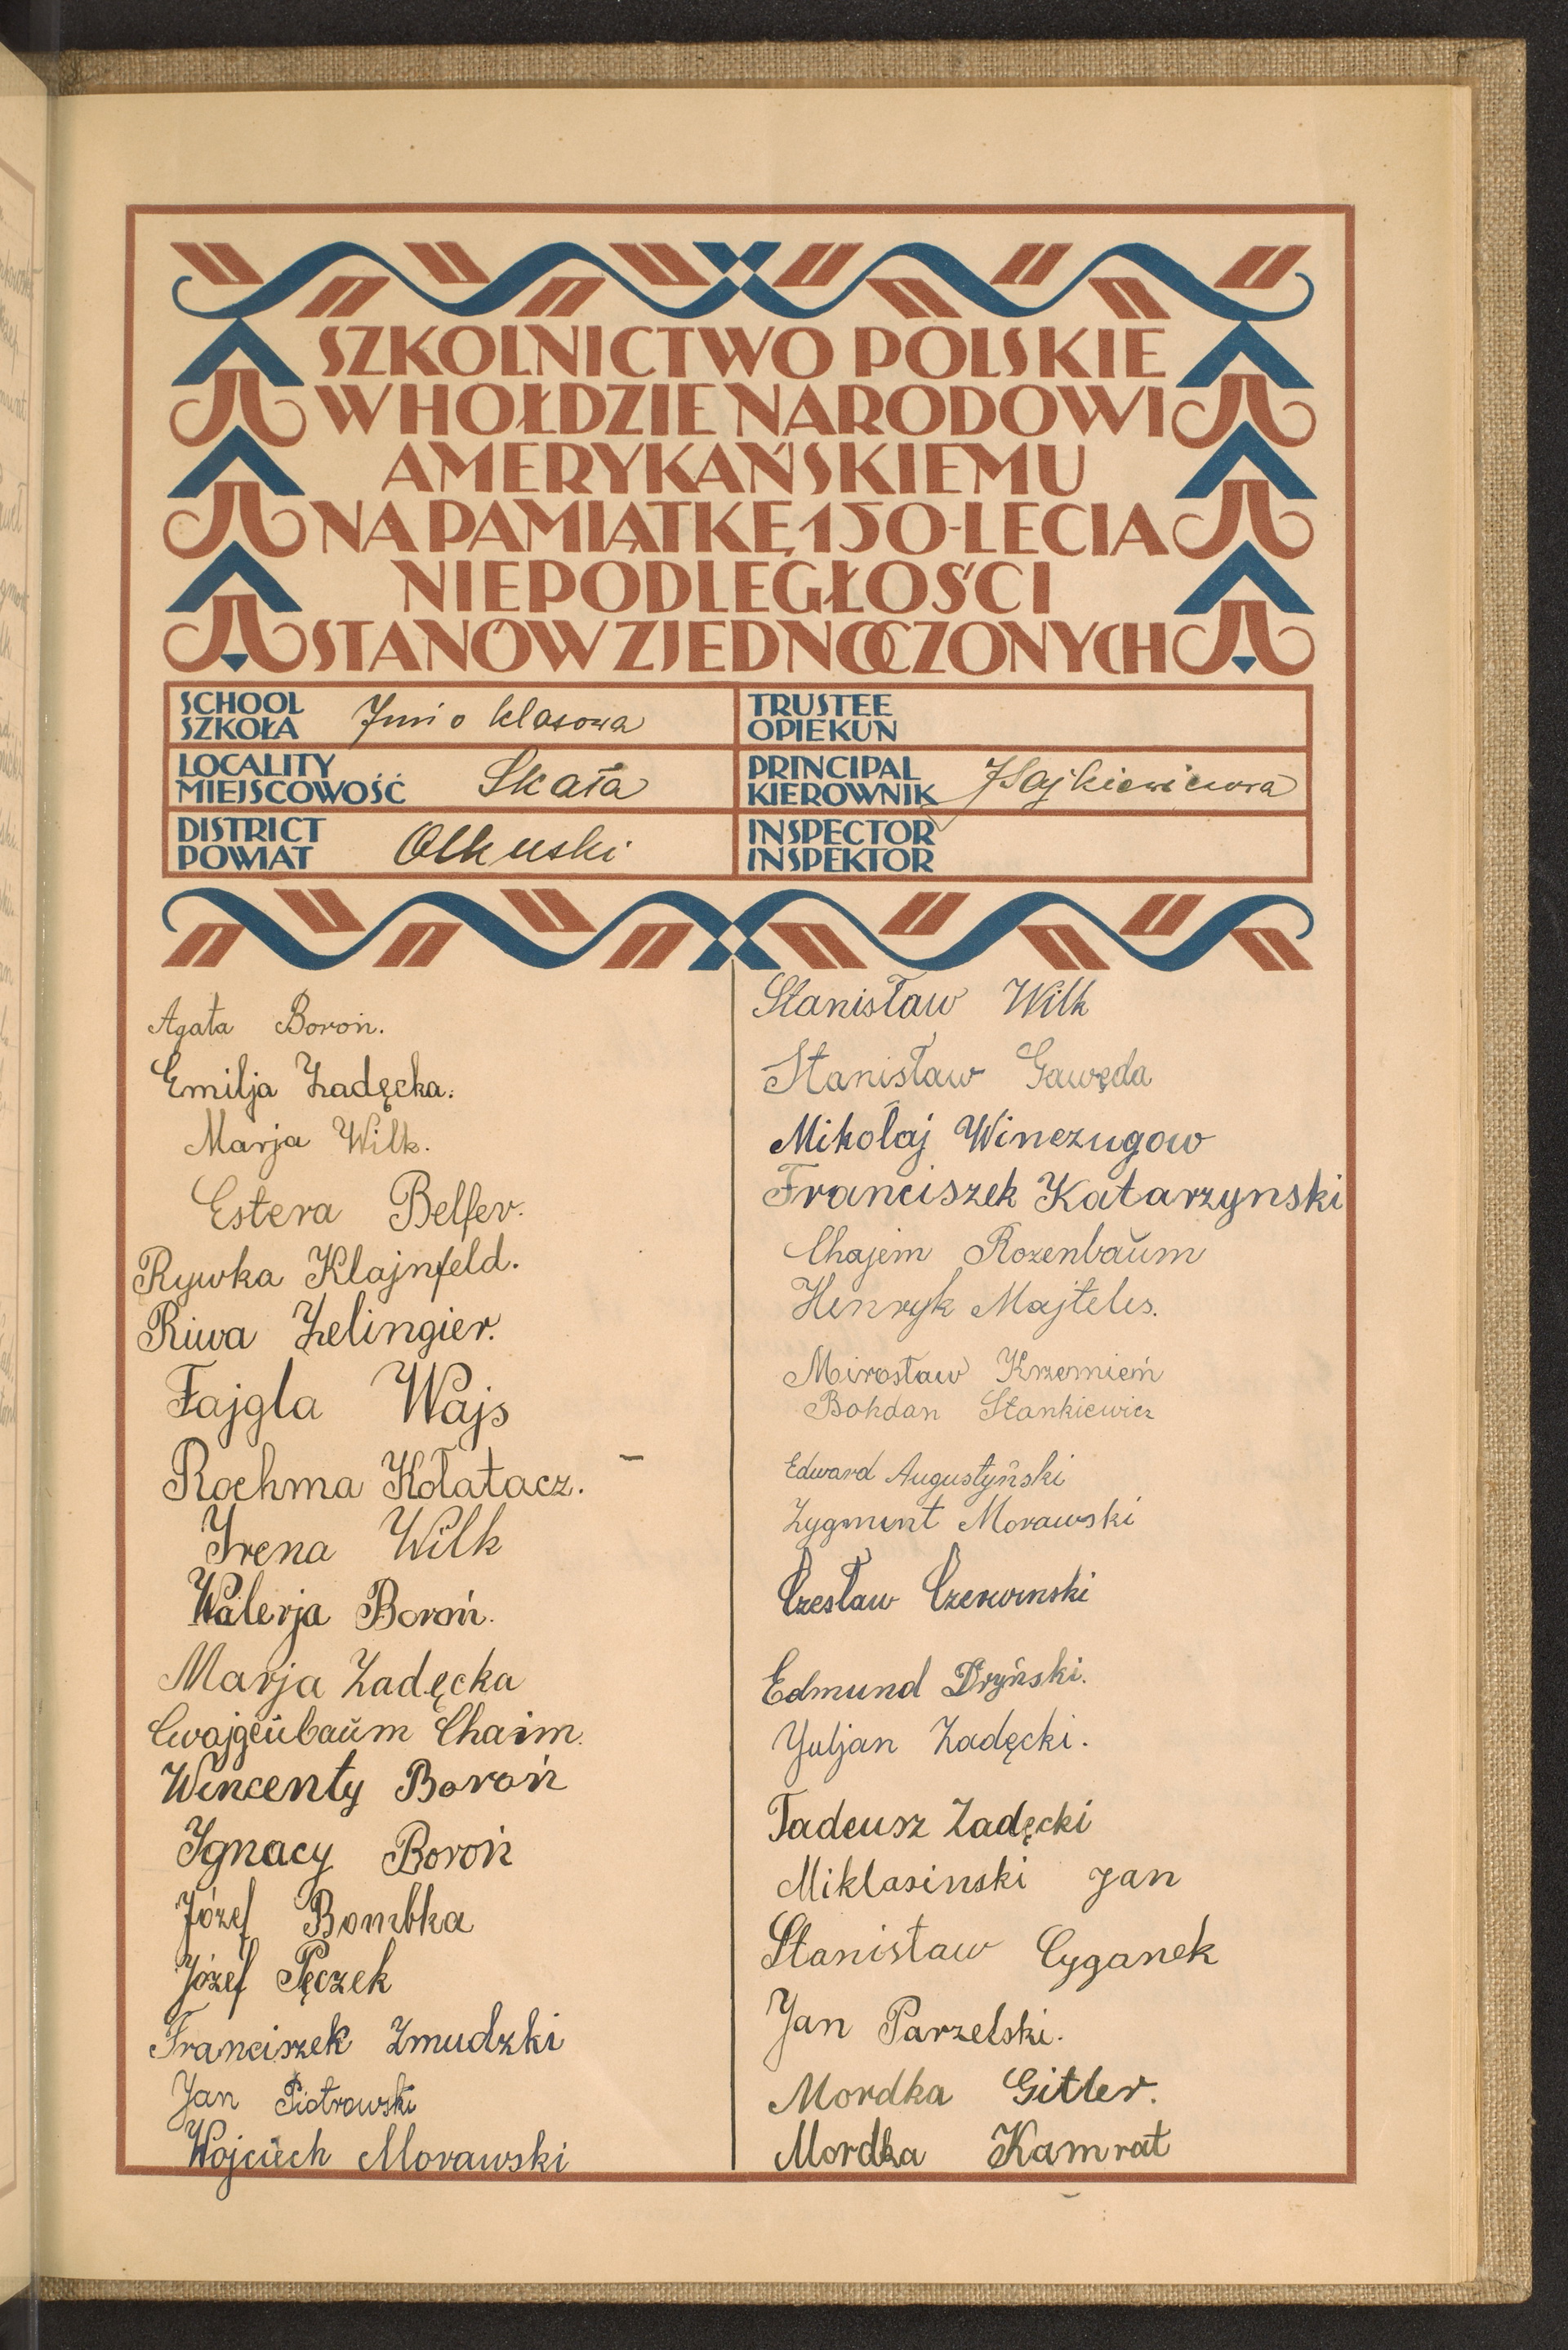 SZKOLNICTWO POLSKIE
W HOŁDZIE NARODOWI
AMERYKAŃSKIEMU
NA PAMIĄTKĘ 150-LECIA
NIEPODLEGŁOŚCI
STANÓW ZJEDNOCZONYCH
SCHOOL
SZKOŁA 7mio klasowa
TRUSTEE
OPIEKUN
LOCALITY
MIEJSCOWOŚĆ Skała
PRINCIPAL
KIEROWNIK
DISTRICT
POWIAT Olkuski
INSPECTOR
INSPEKTOR
Agata Boroń.
Emilja Żadęcka.
Marja Wilk.
Estera Belfer.
Rywka Klajnfeld.
Riwa Zelingier.
Fajgla Wajs
Rochma Kołatacz.
Irena Wilk
Walerja Boroń.
Marja Zadęcka
Cwajgenbaum Chaim.
Wincenty Boroń
Ignacy Boroń
Józef Bombka
Józef Pęczek
Franciszek Zmudzki
Jan Piotrowski
Wojciech Morawski
Stanisław Wilk
Stanisław Gawęda
Mikołaj Winczugow
Franciszek Katarzynski
Chajem Rozenbaŭm
Henryk Majteles.
Mirosław Krzemień
Bohdan Stankiewicz
Edward Augustyński
Zygmunt Morawski
Czesław Czerwinski
Edmund Dryński.
Juljan Zadęcki.
Tadeusz Zadęcki
Miklasinski Jan
Stanisław Cyganek
Jan Parzelski.
Mordka Gitler.
Mordka Kamrat